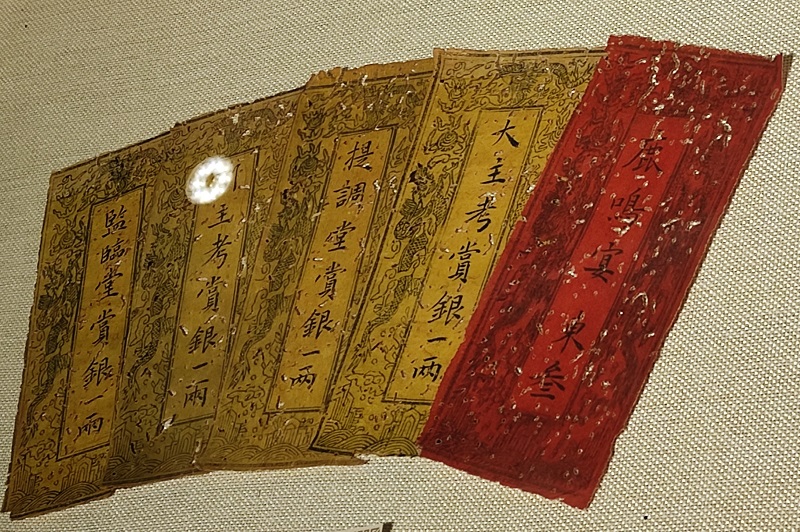 鹿鳴宴東叁
大主考賞銀一兩
提調堂賞銀一兩
主考賞銀一兩
監臨堂賞銀一兩